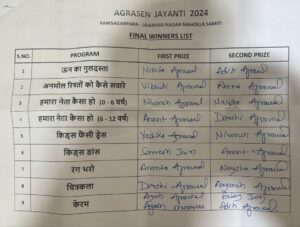 AGRASEN JAYANTI 2024
RAMSAGARPARA - JAWAHAR NAGAR MAHOLLA SAMITI
FINAL WINNERS LIST
S.NO. PROGRAM FIRST PRIZE SECOND PRIZE
1 ऊन का गुलदस्ता Nikita Agrawal Agrawal
2 अनमोल रिश्तों को कैसे सवारे Vibhuti Agrawal Reena Agrawal
3 हमारा नेता कैसा हो (0 - 6 वर्ष) Nivansh Agrawal Naysha Agrawal
4 हमारा नेता कैसा हो (6 - 12 वर्ष) Anant Agrawal Darshi Agrawal
5 किड्स फैंसी ड्रेस Yashika Agrawal Nivansh Agrawal
6 किड्स डांस Jain Anant Agrawal
7 रंग भरो Agrawal Naysha Agrawal
8 चित्रकला Darshi Agrawal Aayansh Agrawal
9 केरम Agrawal Jain
Agrawal